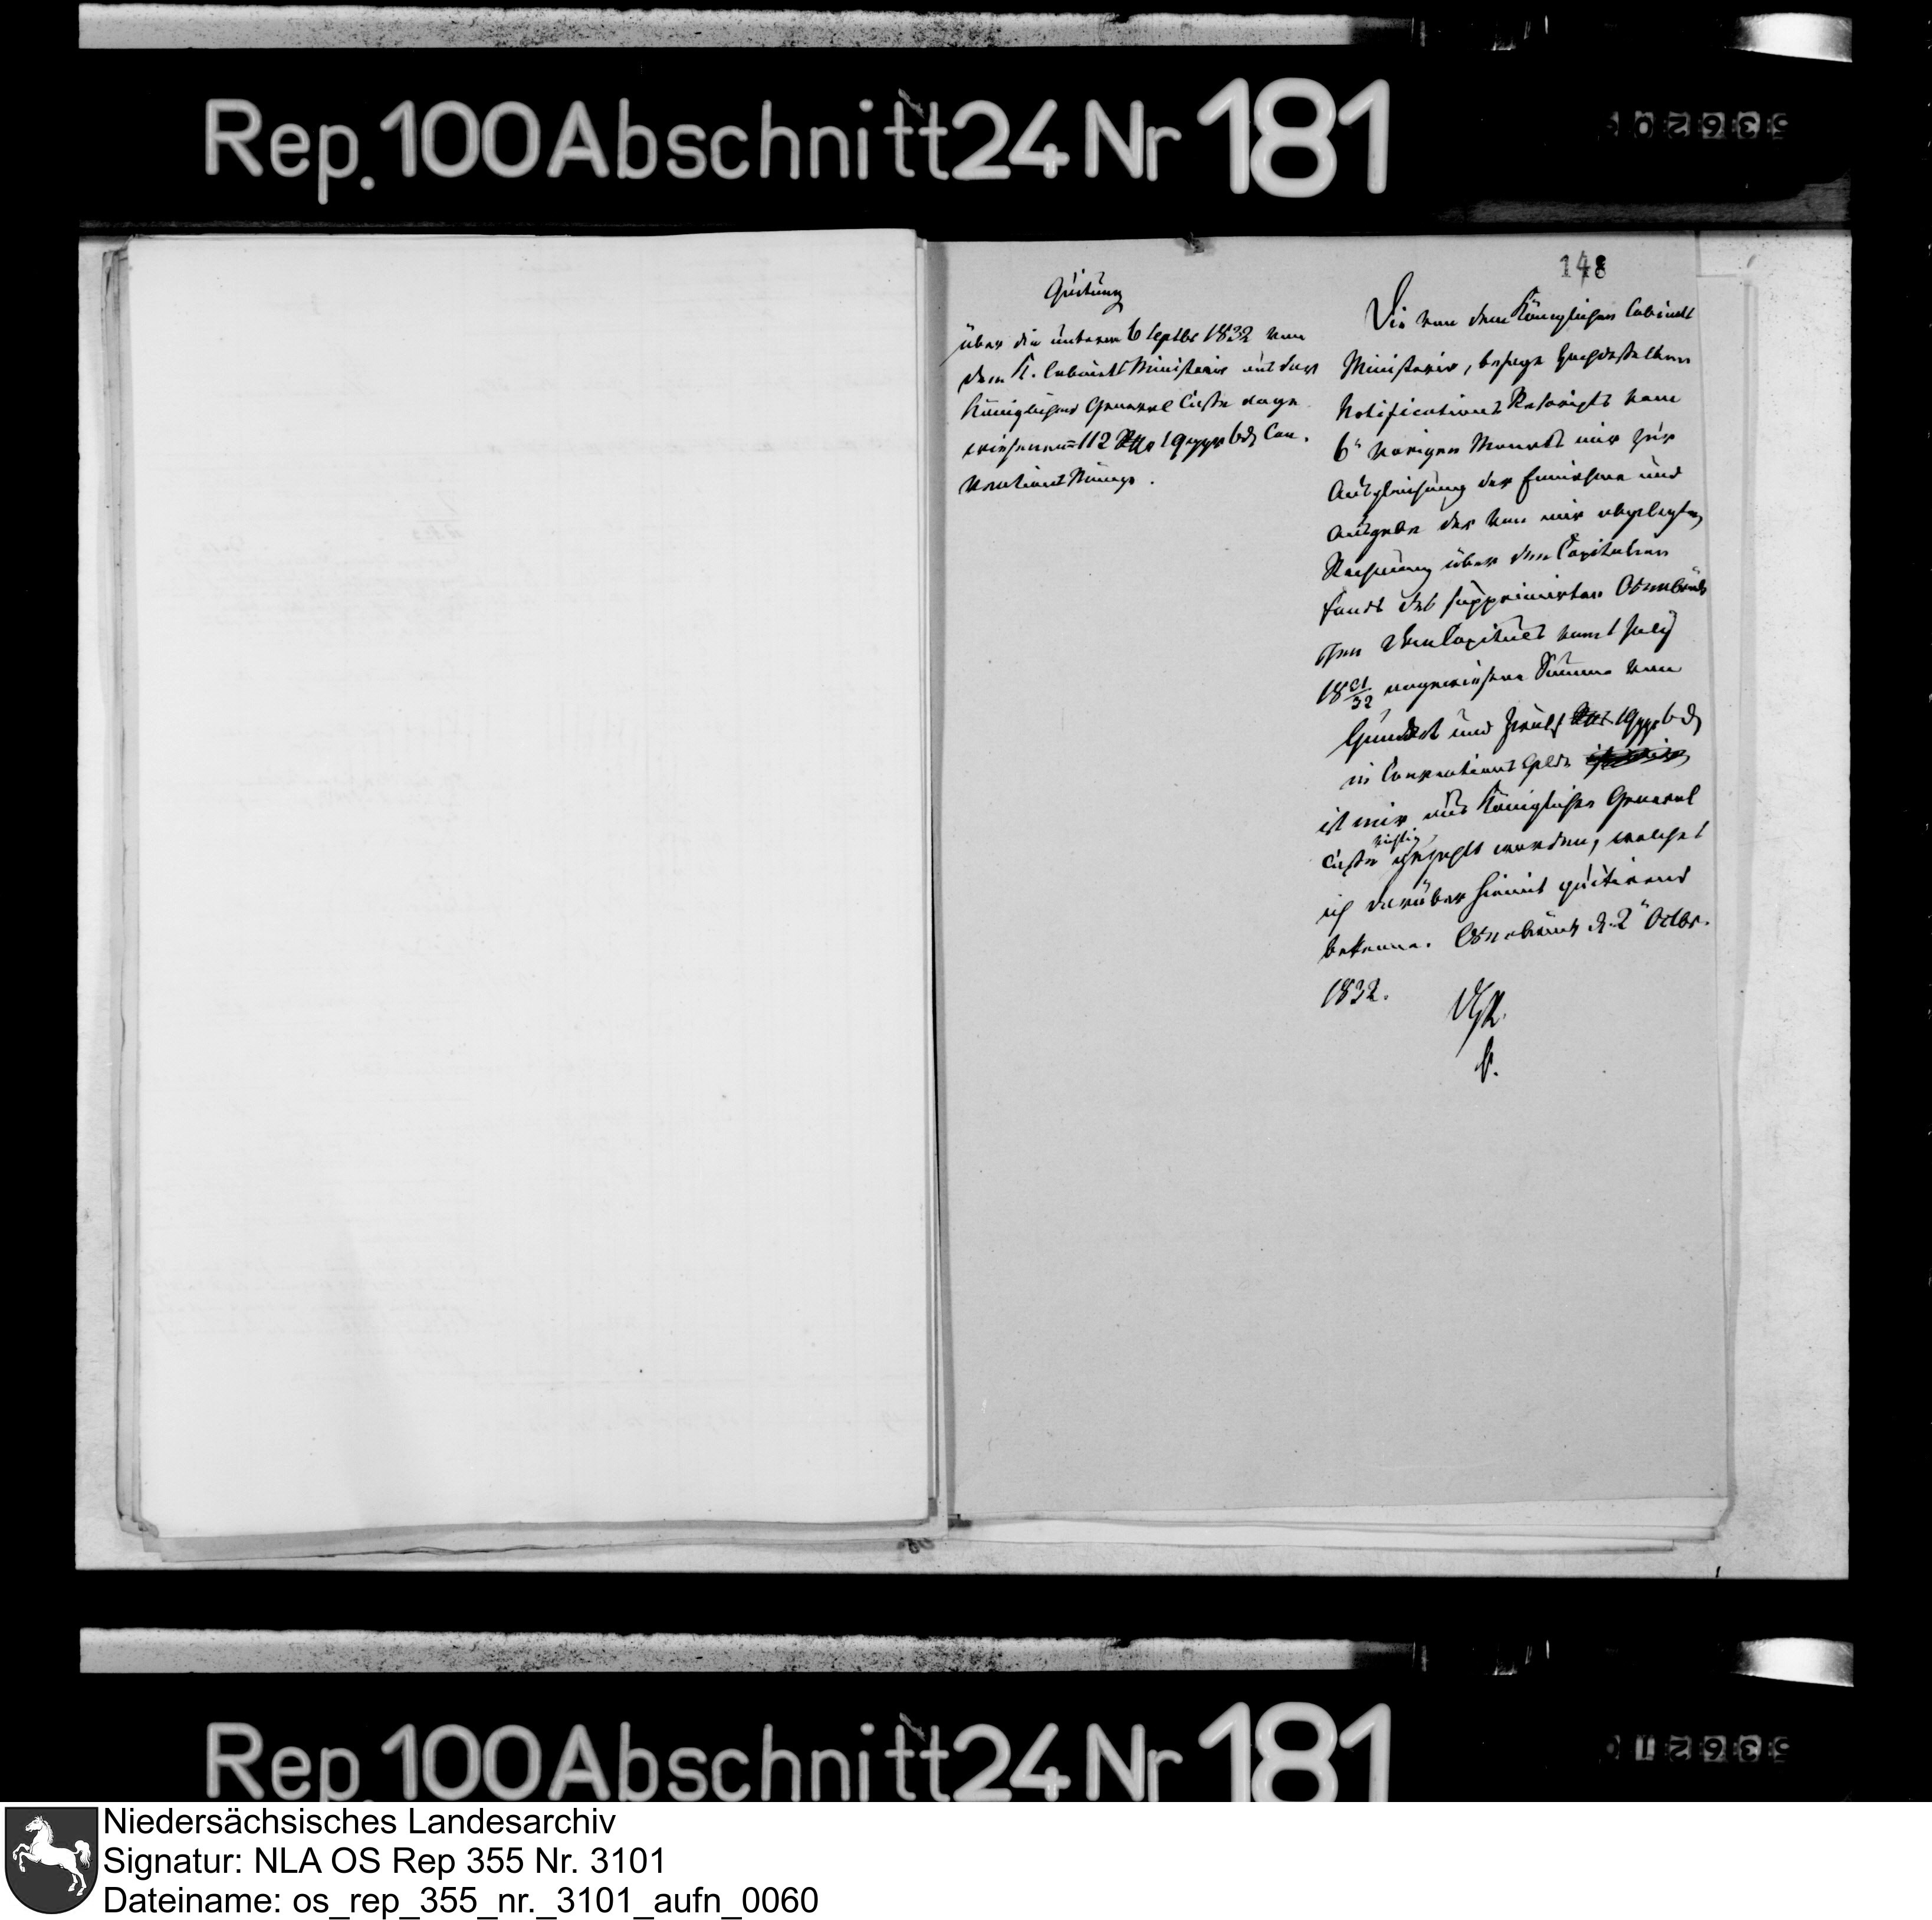 Rep. 100 Abschnitt 24 Nr 181
148
Quitung
über die unterm 6 Septbr 1832 von
dem K. Cabinets Ministerio aus der
Königlichen General Casse ange
wiesenen = 112 Rthlr 19 ggr 6 d Con.
ventions Münze.
Die von dem Königlichen Cabinets
Ministerio, besage hochdesselben
Notifications Rescripts vom
6ten vorigen Monats mir zur
Ausgleichung der Einnahme und
Ausgabe der von mir abgelegten
Rechnung über den Capitular
fonds des supprimirten Osnabrück
schen DomCapitels vom 1 July
18 31/32 angewiesene Summe von
Hundert und Zwölf Rthlr 19 ggr 6 d
in Conventions Gelde
ist mir aus Königlicher General
Casse richtig gezahlt worden, welches
ich darüber hiemit quitirend
bekenne. Osnabrück d. 2ten Octbr.
1832.
Rep. 100 Abschnitt 24 Nr 181
Niedersächsisches Landesarchiv
Signatur: NLA OS Rep 355 Nr. 3101
Dateiname: os_rep_355_nr._3101_aufn_0060